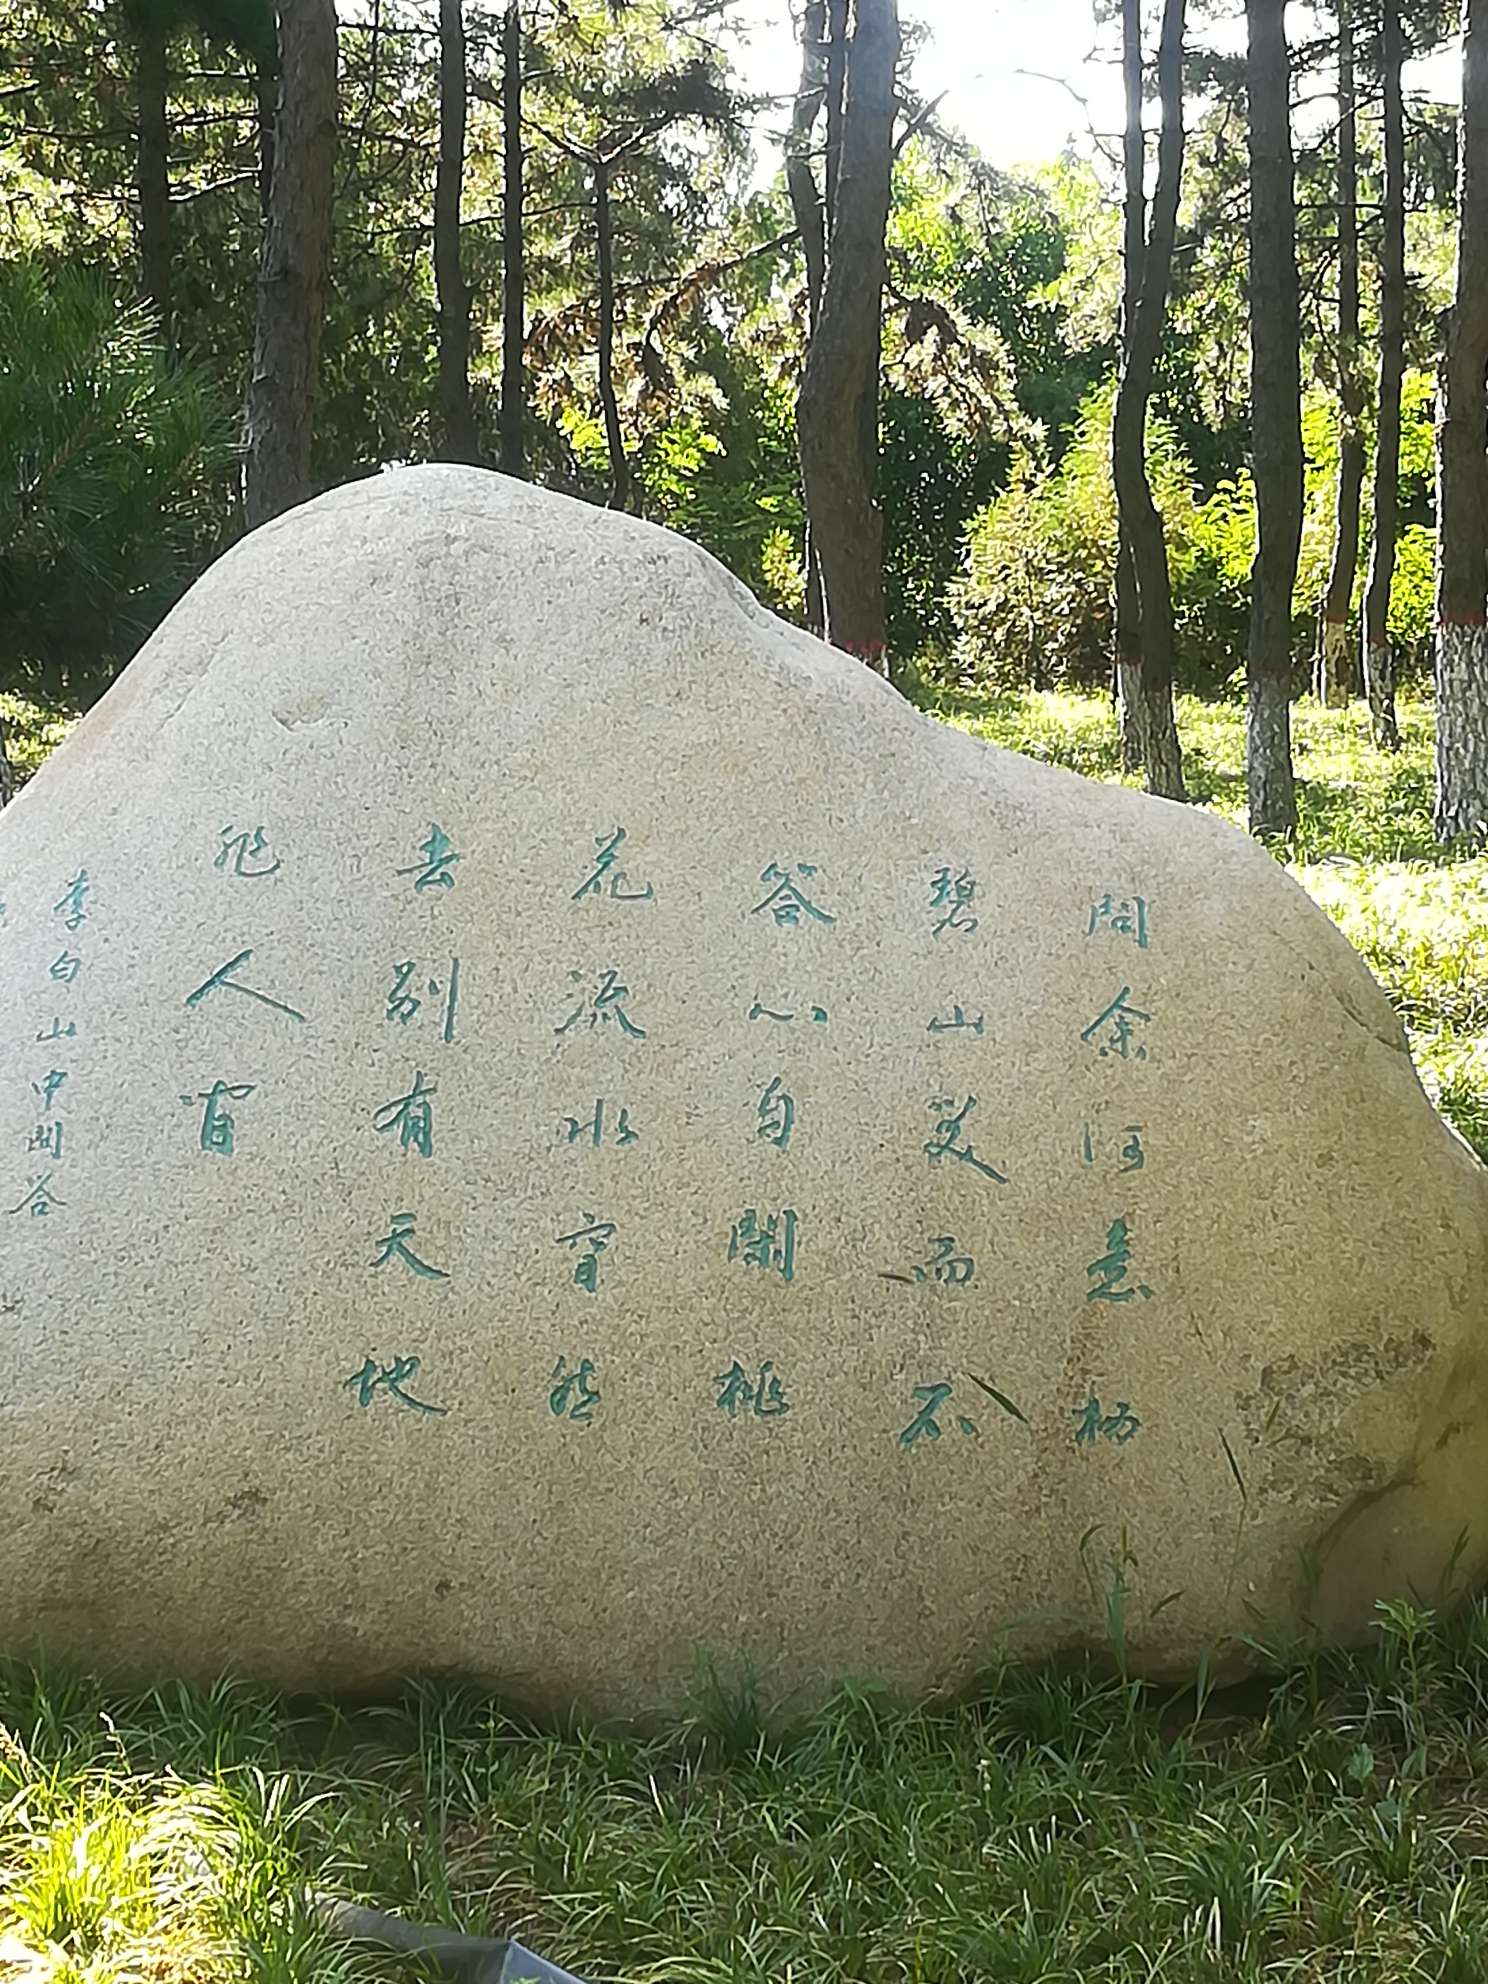 問余何意栖
碧山笑而不
答心自閑桃
花流水窅然
去別有天地
非人間
李白山中問答